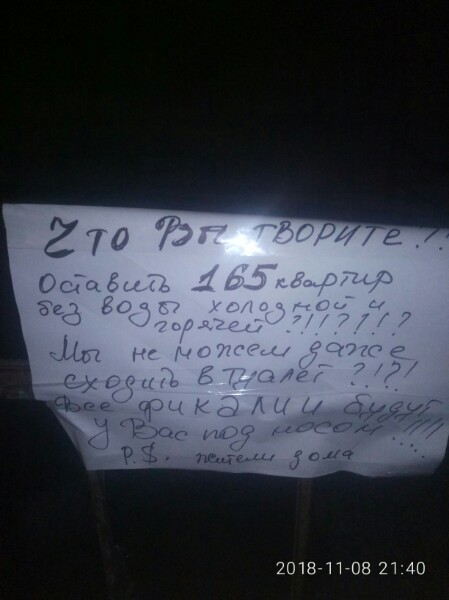 Что Вы творите!!
Оставить 165 квартир
без воды холодной и
горячей ?!!?!!?
Мы не можем даже
сходить в туалет ?!?!
Все фикалии будут
у Вас под носом....!!!!
P.S. жители дома
2018-11-08 21:40